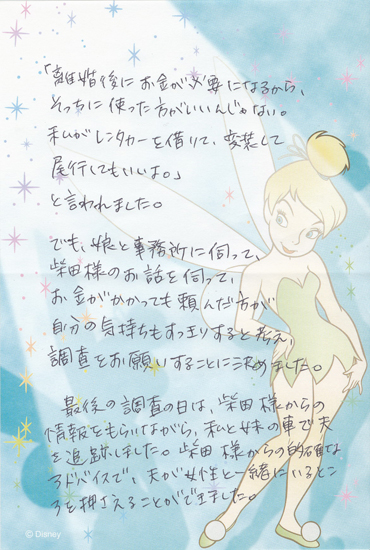 「離婚後にお金が必要になるから、
そっちに使った方がいいんじゃない。
私がレンタカーを借りて、変装して
尾行してもいいよ。」
と言われました。
でも、娘と事務所に伺って、
柴田様のお話を伺って、
お金がかかっても頼んだ方が
自分の気持ちもすっきりすると考え、
調査をお願いすることに決めました。
最後の調査の日は、柴田様からの
情報をもらいながら、私と妹の車で夫
を追跡しました。柴田様からの的確な
アドバイスで、夫が女性と一緒にいるとこ
ろを押さえることができました。
© Disney